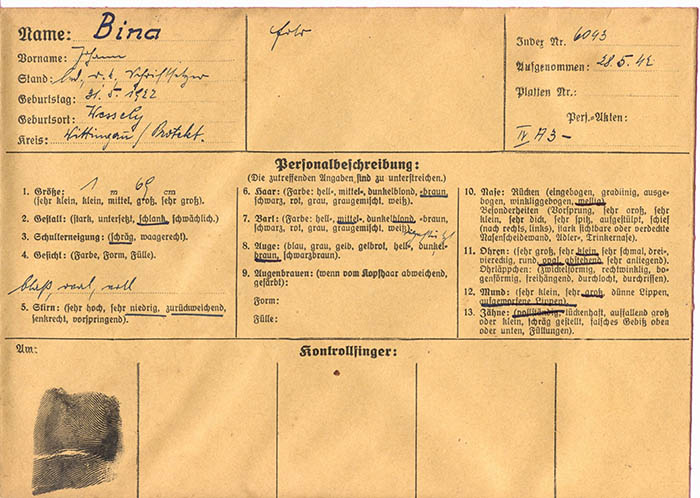 Name: Bina
Vorname: Johann
Stand: led., r. k., Schriftsetzer
Geburtstag: 31. 5. 1922
Geburtsort: Wessely
Kreis: Wittingau / Protekt.
Index Nr. 6043
Aufgenommen: 28. 5. 42
Platten Nr.:
Pers.-Akten:
IV A3 –
Personalbeschreibung:
(Die zutreffenden Angaben sind zu unterstreichen.)
1. Größe: 1 m 69 cm
(sehr klein, klein, mittel, groß, sehr groß).
2. Gestalt: (stark, untersetzt, schlank, schwächlich).
3. Schulterneigung: (schräg, waagerecht).
4. Gesicht: (Farbe, Form, Fülle).
blaß, oval, voll
5. Stirn: (sehr hoch, sehr niedrig, zurückweichend,
senkrecht, vorspringend).
6. Haar: (Farbe: hell-, mittel-, dunkelblond, -braun,
schwarz, rot, grau, graugemischt, weiß).
7. Bart: (Farbe: hell-, mittel-, dunkelblond, -braun,
schwarz, rot, grau, graugemischt, weiß)
8. Auge: (blau, grau, gelb, gelbrot, hell-, dunkel-
braun, schwarzbraun).
9. Augenbrauen: (wenn vom Kopfhaar abweichend,
gefärbt):
Form:
Fülle:
10. Nase: Rücken (eingebogen, gradlinig, ausge-
bogen, winkliggebogen, wellig)
Besonderheiten (Vorsprung, sehr groß, sehr
klein, sehr dick, sehr spitz, aufgestülpt, schief
(nach rechts, links), stark sichtbare oder verdeckte
Nasenscheidewand, Adler-, Trinkernase).
11. Ohren: (sehr groß, sehr klein, sehr schmal, drei-,
viereckig, rund, oval, abstehend, sehr anliegend).
Ohrläppchen: (zwickelförmig, rechtwinklig, bo-
genförmig, freihängend, durchlocht, durchrissen).
12. Mund: (sehr klein, sehr groß, dünne Lippen,
aufgeworfene Lippen).
13. Zähne: (vollständig, lückenhaft, auffallend groß
oder klein, schräg gestellt, falsches Gebiß oben
oder unten, Füllungen).
Am:
Kontrollfinger: